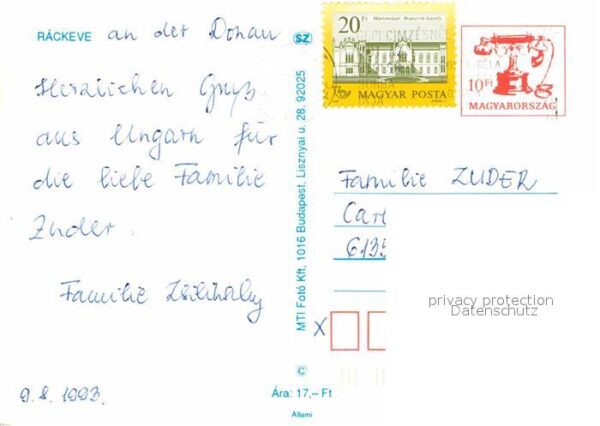 RÁCKEVE an der Donau
Herzlichen Gruß
aus Ungarn für
die liebe Familie
Zuder.
Familie
9.8.1993.
SZ
MTI Fotó Kft, 1016 Budapest, Lisznyai u. 28. 92025
C
Ára: 17,– Ft
Állami
20 Ft
Martonvásár Brunszvik-kastély
MAGYAR POSTA
CIMZÉSNÉ
10 Ft
MAGYARORSZÁG
Familie ZUDER
Carl
6135
privacy protection
Datenschutz
X